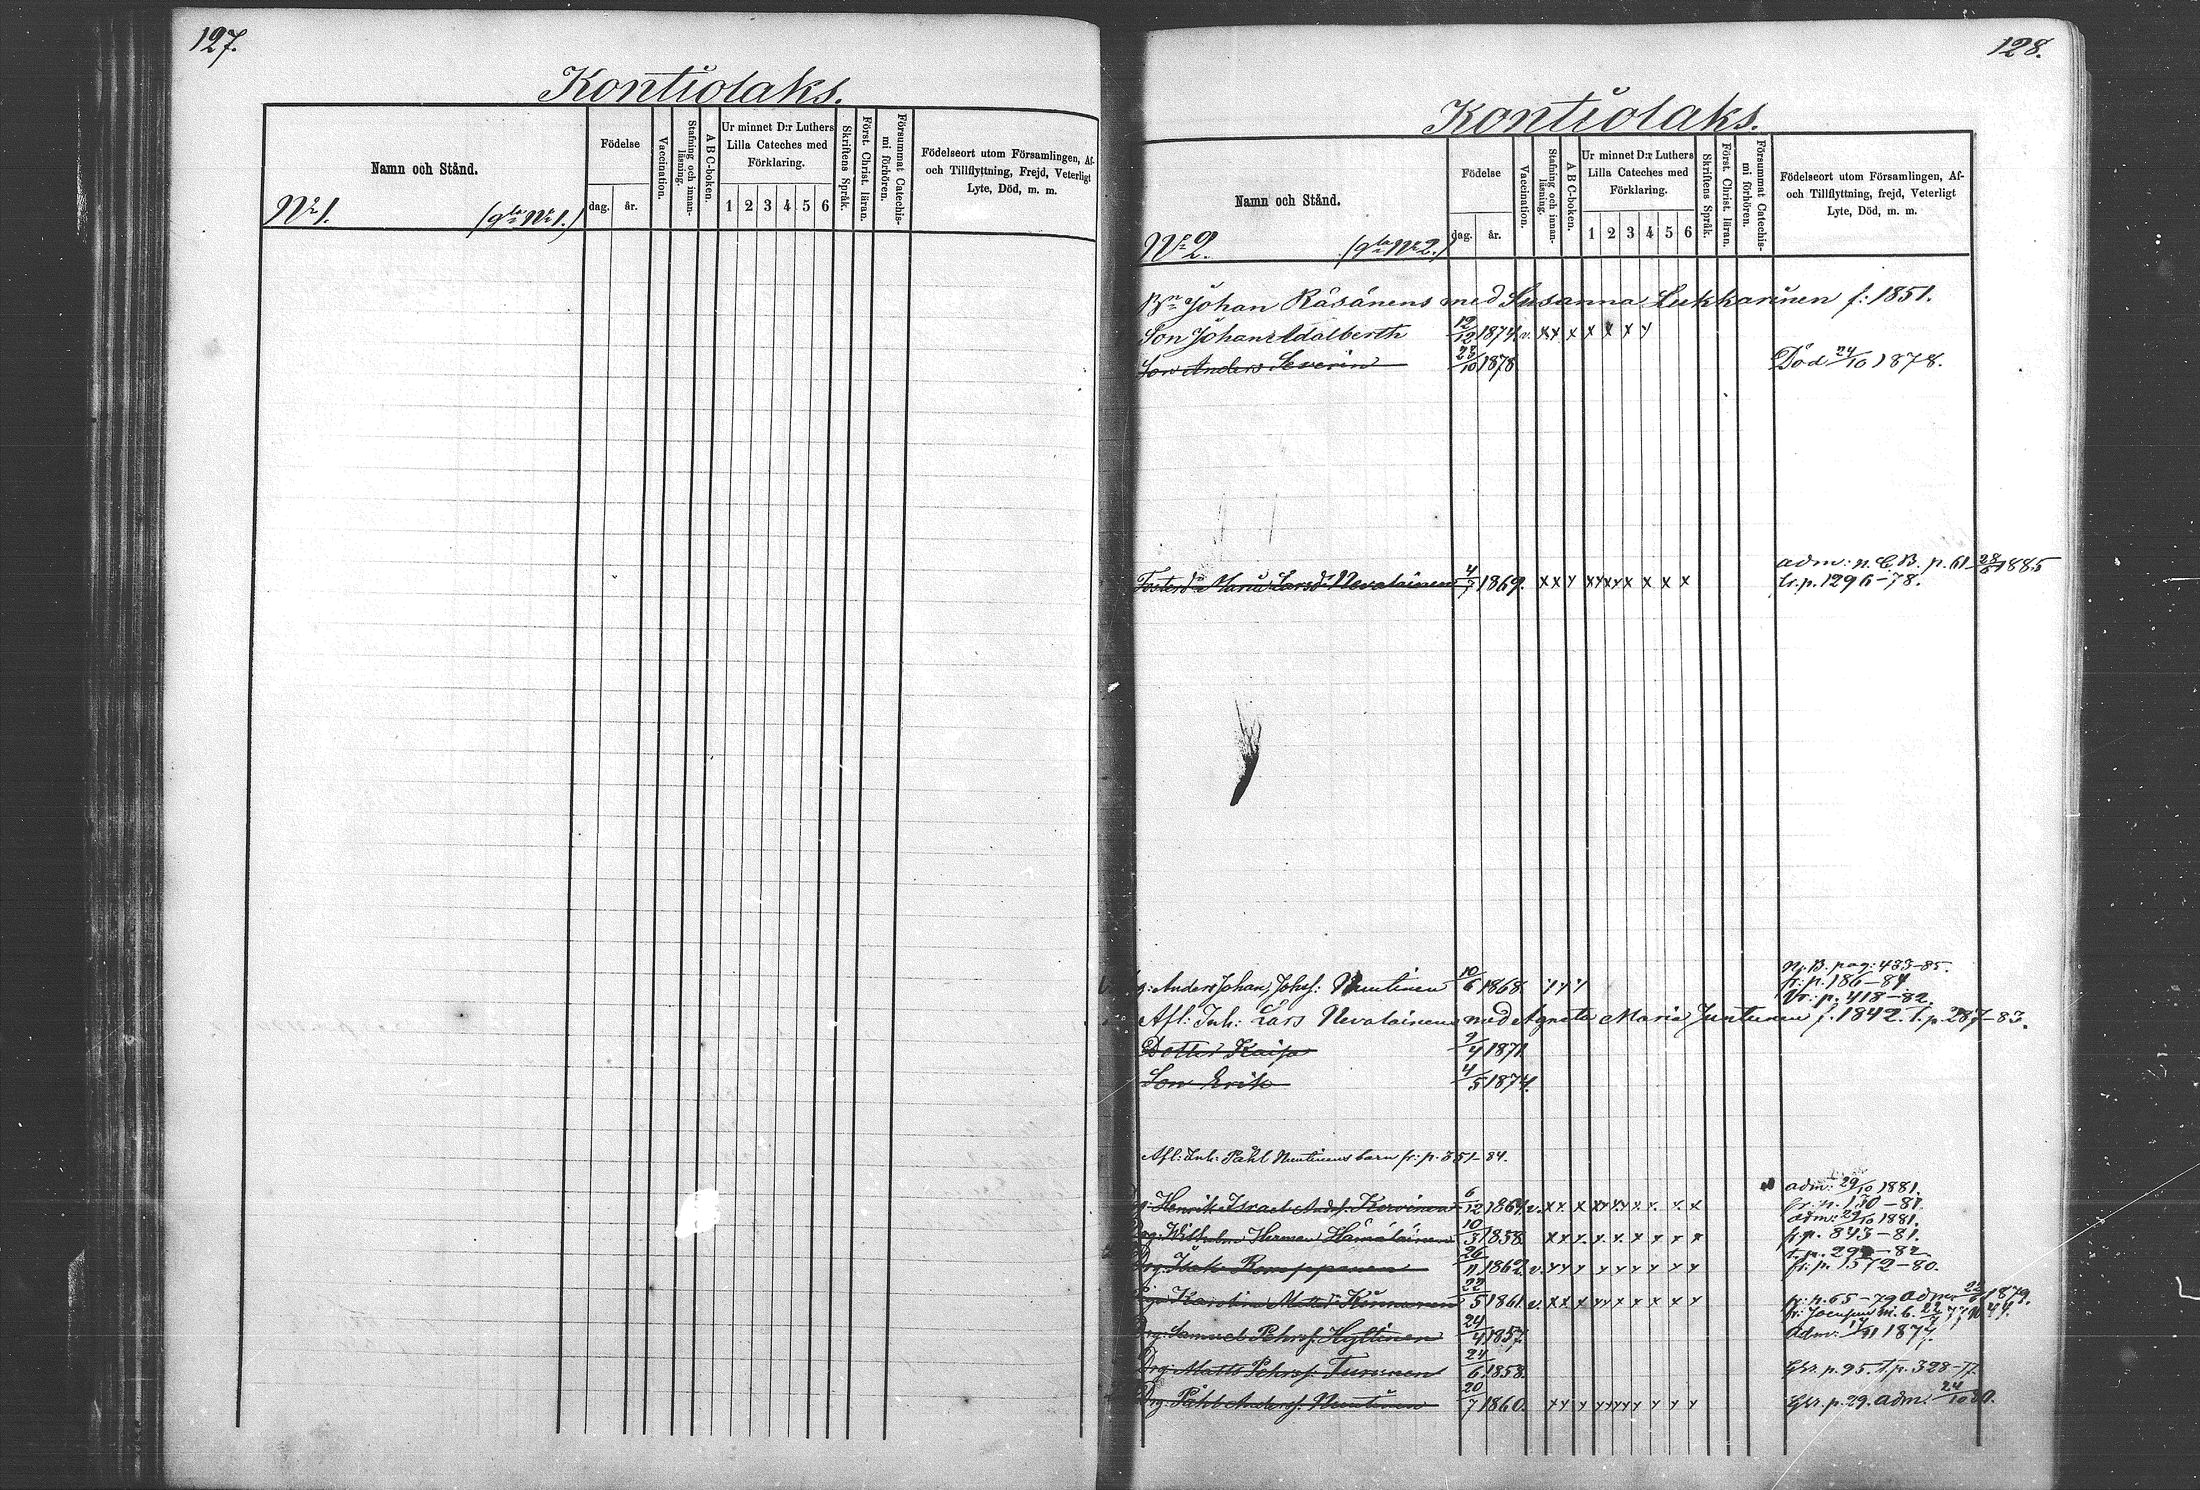 127.
Kontiolaks.
Namn och Stånd.
Födelse
dag.
år.
Vaccination.
Stafning och innanläsning.
ABC-boken.
Ur minnet D:r Luthers
Lilla Cateches med
Förklaring.
1 2 3 4 5 6
Skriftens Språk.
Först. Christ. läran.
Försummat Catechismi förhören.
Födelseort utom Församlingen, Af-
och Tillflyttning, Frejd, Veterligt
Lyte, Död, m. m.
No 1. (gla No 1.)
128.
Kontiolaks.
Namn och Stånd.
Födelse
dag.
år.
Vaccination.
Stafning och innanläsning.
ABC-boken.
Ur minnet D:r Luthers
Lilla Cateches med
Förklaring.
1 2 3 4 5 6
Skriftens Språk.
Först. Christ. läran.
Försummat Catechismi förhören.
Födelseort utom Församlingen, Af-
och Tillflyttning, frejd, Veterligt
Lyte, Död, m. m.
No 2. (gla No 2.)
Bn Johan Räsänens med Susanna Lukkarinen f: 1851.
Son Johan Adalberth 12/12 1874. v. x x x x x x x
Son Anders Severin 23/10 1878 Död 24/10 1878.
adm: n. C. B. p. 61 28/8 1885
Fosterd: Maria Larsd: Nevalainen 4/7 1869. x x x x x x x x x x fr. p. 1296-78.
N. B. pag: 483-85.
fr: p. 186-84.
Anders Johan, Johsf: Nuutinen 10/6 1868
fr: p. 418-82.
Afl: Inh: Lars Nevalainens med Agneta Maria Juntunen f. 1842. t. p. 287-83.
Dotter Kaisa 2/4 1871
Son Erik 4/5 1874.
Afl: Inh: Påhl Nuutinens barn fr: p. 351-84.
adm: 29/10 1881.
Henrik Israel Andsf. Korvinen 6/12 1864. v. x x x x x x x x x x fr. p. 130-81.
adm: 29/10 1881.
Drg: Wilhelm Herman Hämäläinen 10/3 1858 x x x x x x x x x fr p. 843-81.
t. p. 292-82.
Drg. Isak Romppanen 26/11 1862. v. x x x x x x x x x fr: p. 1572-80.
Karolina Mattsd: Kinnunen 22/5 1861. v. x x x x x x x x x x fr: p. 65-79 adm 22/6 1879.
Drg: Samuel Pehrsf. Hyttinen 24/4 1857. adm: 17/11 1877.
Drg: Matts Pehrsf. Turunen 24/6 1858. Gbr. p. 95. t. p. 328-77.
Drg. Påhl Andersf. Nuutinen 20/7 1860. x x x x x x x x x x Gbr. p. 29. adm. 24/10 80.